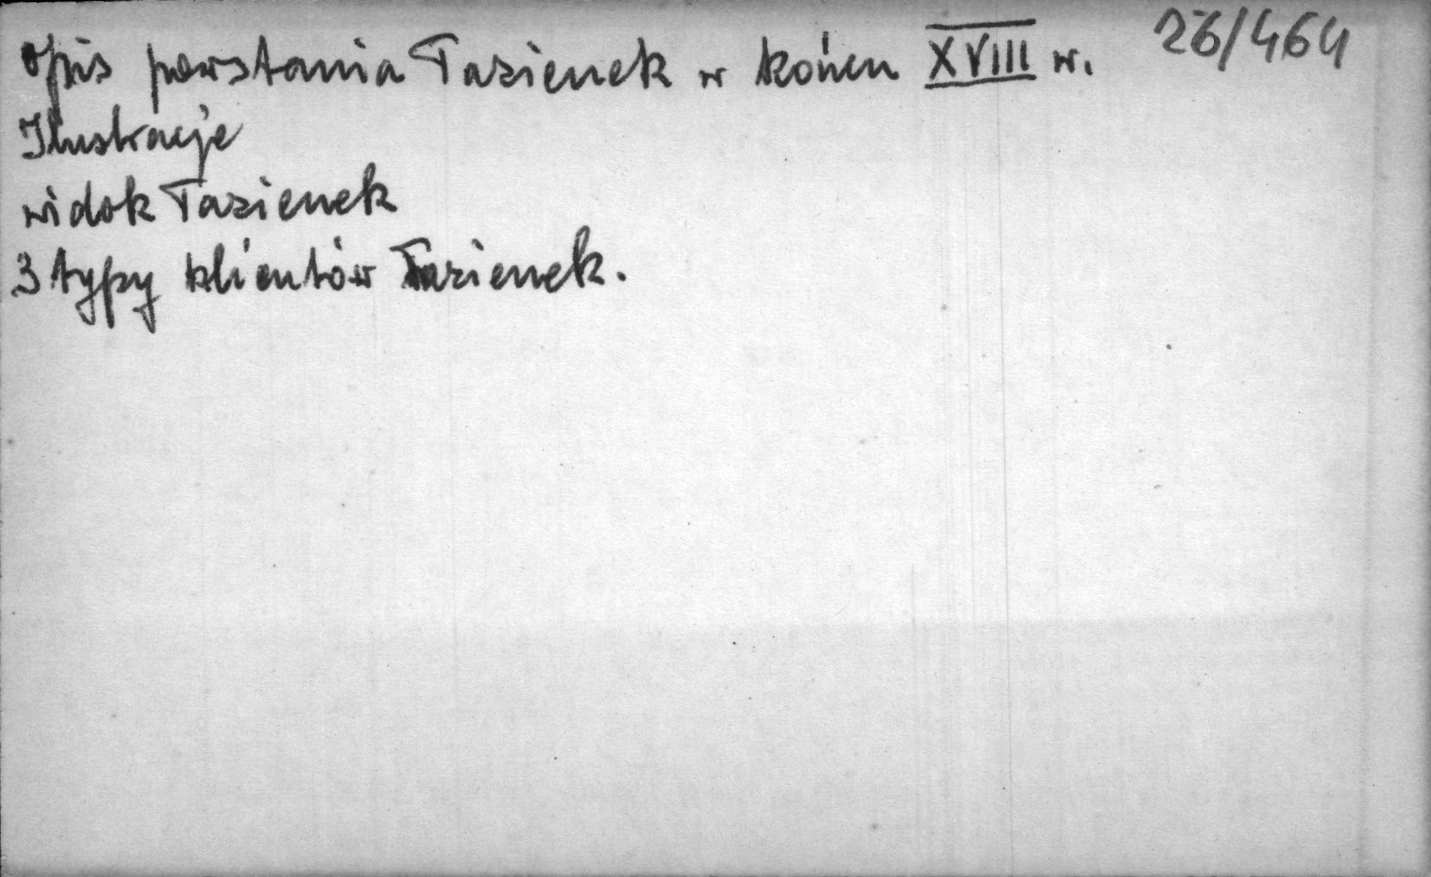 Opis powstania Łazienek w końcu XVIII w. 26/464
Ilustracje
widok Łazienek
3 typy klientów Łazienek.